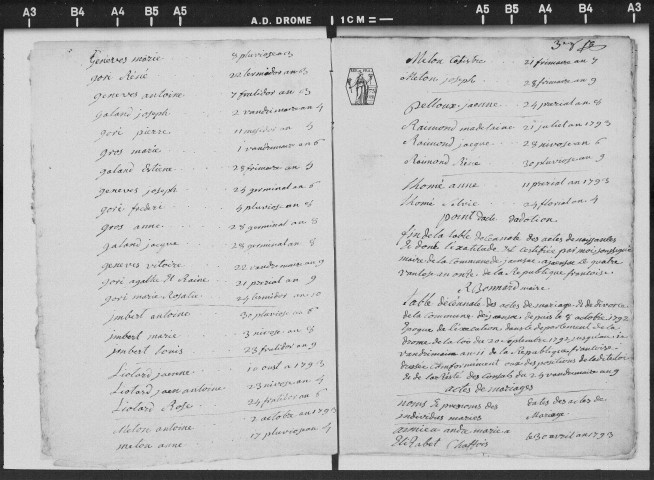 A3 B4 A4 B5 A5 A.D. DROME 1 CM A5 B5 A4 B4 A3
Geneves marie 8 pluviose an 3
gori Réné 22 termidor an 3
geneves antoine 7 frutidor an 3
galand joseph 2 vandemaire an 4
gori pierre 11 mesidor an 4
gros marie 1 vandemaire an 6
galand etienne 28 frimaire an 4
geneves joseph 24 germinal an 6
gori federi 4 pluviose an
gros anne 28 germinal an 8
galand jacque 28 germinal an 8
geneves vitoire 22 vandemaire an 9
gori agathe Raine 21 prerial an 9
gori marie Rosalie 24 termidor an 10
jmbert antoine 30 pluviose an 6
jmbert marie 3 nivose an 8
jmbert louis 23 frutidor an 9
Liotard janne 10 oust a 1793
Liotard jaen antoine 23 nivose an 4
Liotard Rose 24 frutidor an 6
Melon antoine 2 octobre an 1793
melon anne 17 pluviose an 4
Melon 21 frimaire an 7
Melon joseph 28 frimaire an 9
pelloux janne 24 prerial an 8
Raimond madelaine 21 juliet an 1793
Raimond jacque 28 nivose an 6
Raimond Réné 30 pluviose an 9
thomé anne 11 prerial an 1793
thomé Silvie 24 florial an 4
point dacte dadotion
fin de la table décénale des actes de naisances
maire de la commune de
vantose an onze de la Republique francoise
R Bonnard maire
table décénale des actes de mariage & de divorce
de la commune de depuis le 5 octobre 1792
Epoque de l'exécution dans le departement de la
drome de la loi du 20 septembre 1792 jusqu'au 1er
vandemaire an 11 de la Republique francoise
dressée conformement aux dispositions de la dite loi
& de larreté des consuls du 25 vandemaire an 9
actes de mariages
noms & prenoms des dates des actes de
individus mariés Mariage
andre marie a
Elizabet Chaffois le 30 avril an 1793